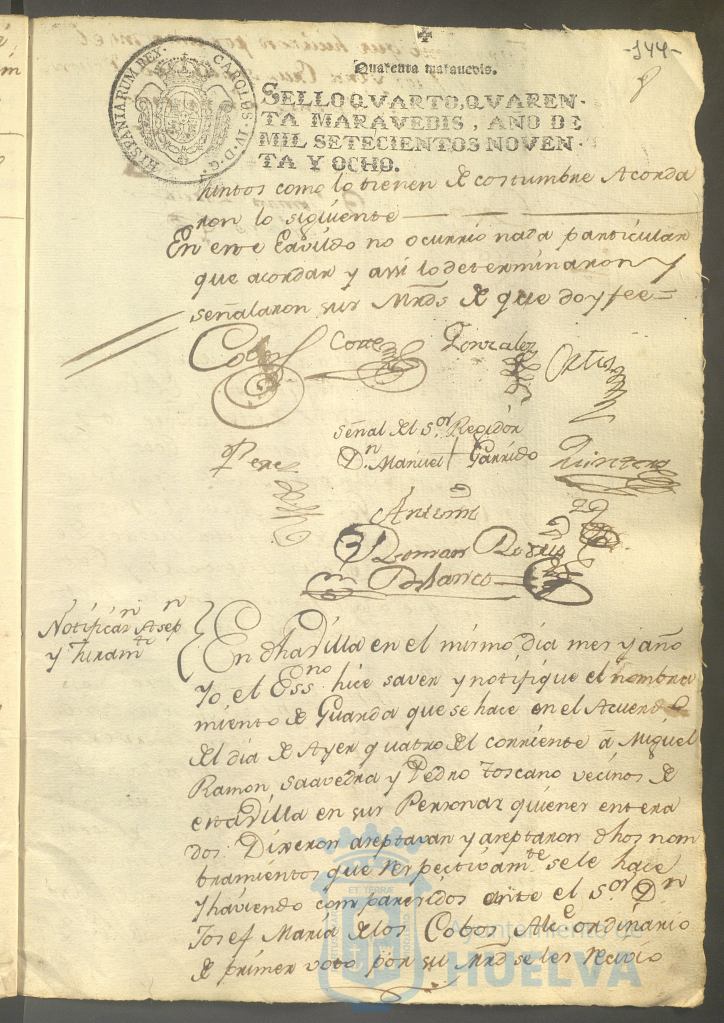 -144-
Quarenta marauedis.
HISPANIARUM REX. CAROLUS IV D. G.
SELLO QVARTO, QVAREN-
TA MARAVEDIS, AÑO DE
MIL SETECIENTOS NOVEN-
TA Y OCHO.
Juntos como lo tienen de costumbre Acorda
ron lo siguiente
En este Cavildo no ocurrio nada particular
que acordar y assi lo determinaron y
señalaron sus Mrds de que doy fee=
Cobos Gonzalez Ortiz
señal del s.or Regidor
Perez D.n Manuel + Garrido Quintero
Antemi
Roman
Blanco
Notificaz.n Asep.n
y Juram.to
En dha Villa en el mismo dia mes y año
Yo el Ess.no hice saver y notifique el nombra
miento de Guarda que se hace en el Acuerdo
del dia de Ayer quatro del corriente â Miguel
Ramon Saavedra y Pedro Toscano vecinos de
esta Villa en sus Personas quienes entera
dos: Dixeron aseptavan y aseptaron dhos nom
bramientos que respectivam.te se le hace
y haviendo comparesidos ante el s.or D.n
Josef Maria de los Cobos Alc.e ordinario
de primer voto por su Mrd se les recivio
Ayuntamiento de
HUELVA